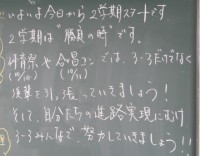 いよいよ今日から2学期スタートです
2学期は"勝負の時"です。
体育祭や合唱コンでは、3-3だけでなく
後輩を引っ張っていきましょう!
そして、自分たちの進路実現にむけ
3-3みんなで、努力していきましょう!!